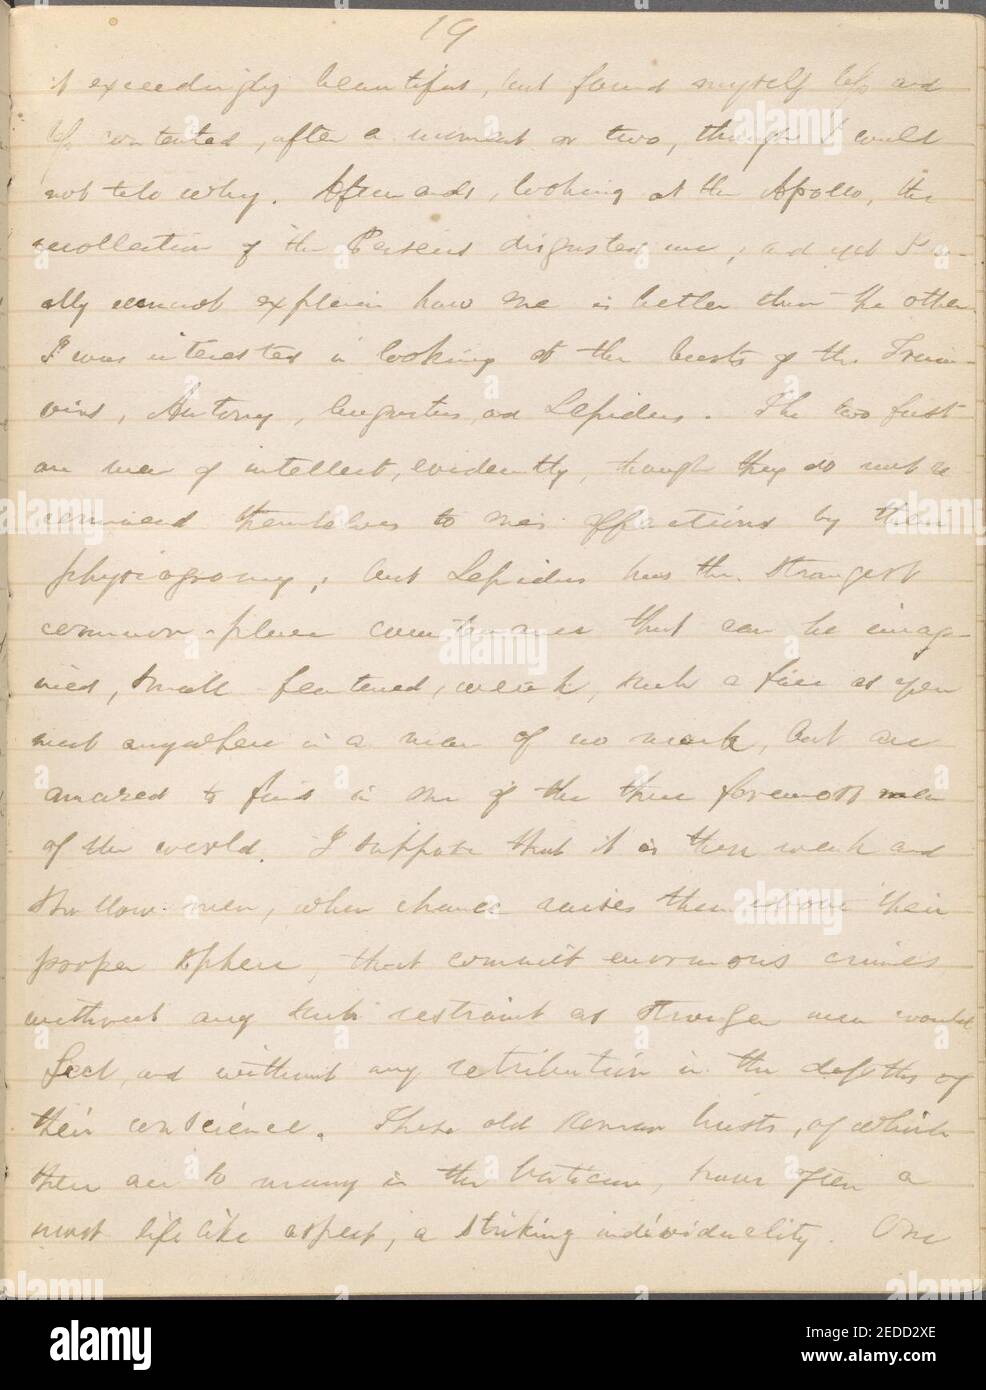 19
it exceedingly beautiful, but found myself less and
less contented, after a moment or two, though I could
not tell why. Afterwards, looking at the Apollo, the
recollection of the Perseus disgusted me; and yet I re-
ally cannot explain how one is better than the other.
I was interested in looking at the busts of the Trium-
virs, Antony, Augustus, and Lepidus. The two first
are men of intellect, evidently, though they do not re
commend themselves to one's affections by their
physiognomy; but Lepidus has the strangest
common-place countenance that can be imag-
ined, small featured, weak, such a face as you
meet anywhere in a man of no mark, but are
amazed to find in one of the three foremost men
of the world. I suppose that it is these weak and
shallow men, when chance raises them above their
proper sphere, that commit enormous crimes
without any such restraint as stronger men would
feel, and without any retribution in the depths of
their conscience. These old Roman busts, of which
there are so many in the Vatican, have often a
most lifelike aspect, a striking individuality. One
alamy
alamy stock photo
Image ID: 2EDD2XE
www.alamy.com